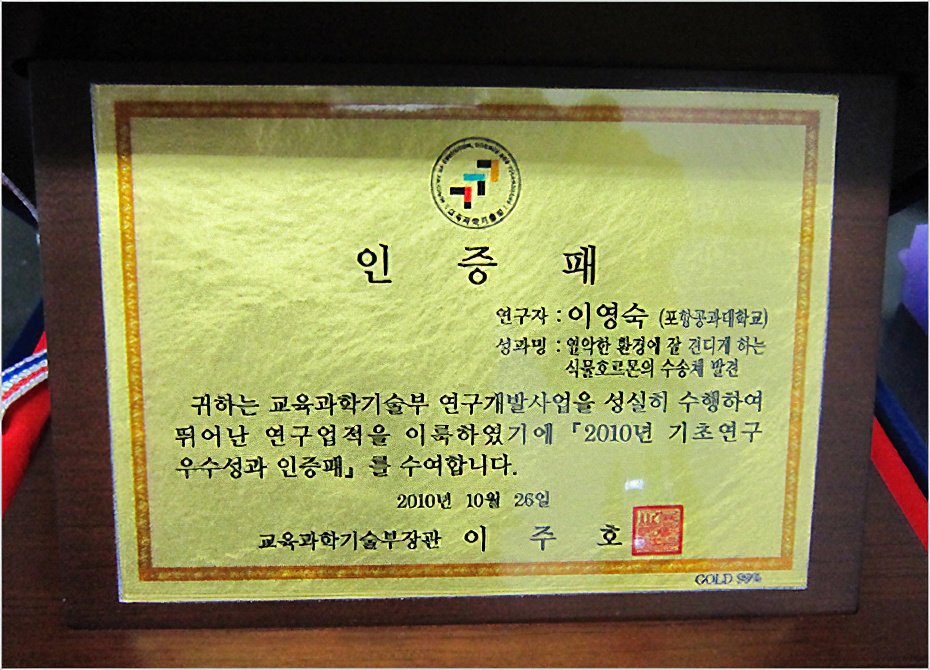 MINISTRY OF EDUCATION, SCIENCE AND TECHNOLOGY
교육과학기술부
인 증 패
연구자 : 이영숙 (포항공과대학교)
성과명 : 열악한 환경에 잘 견디게 하는
식물호르몬의 수송체 발견
귀하는 교육과학기술부 연구개발사업을 성실히 수행하여
뛰어난 연구업적을 이룩하였기에 『2010년 기초연구
우수성과 인증패』를 수여합니다.
2010년 10월 26일
교육과학기술부장관 이 주 호
GOLD 99%